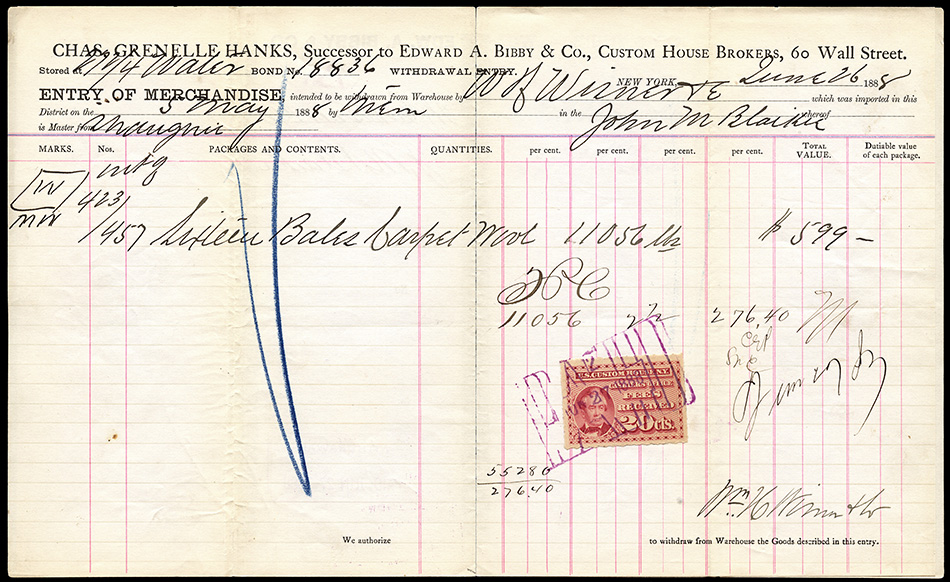 CHAS. GRENELLE HANKS, Successor to EDWARD A. BIBBY & CO., CUSTOM HOUSE BROKERS, 60 Wall Street.
Stored at Water BOND No. 8836 WITHDRAWAL ENTRY. NEW YORK, June 26 1888
ENTRY OF MERCHANDISE, intended to be withdrawn from Warehouse by W H which was imported in this
District on the 5 May 1888 by them in the John M Blaikie whereof
is Master from Shanghai
MARKS. Nos. PACKAGES AND CONTENTS. QUANTITIES. per cent. per cent. per cent. per cent. TOTAL VALUE. Dutiable value of each package.
W
423/
1457 Sixteen Bales Carpet Wool 11056 lbs $ 599 —
11056 2½ 276,40
U.S. CUSTOM HOUSE N.Y.
FEES
RECEIVED
20 cts.
55280
27640
We authorize
to withdraw from Warehouse the Goods described in this entry.